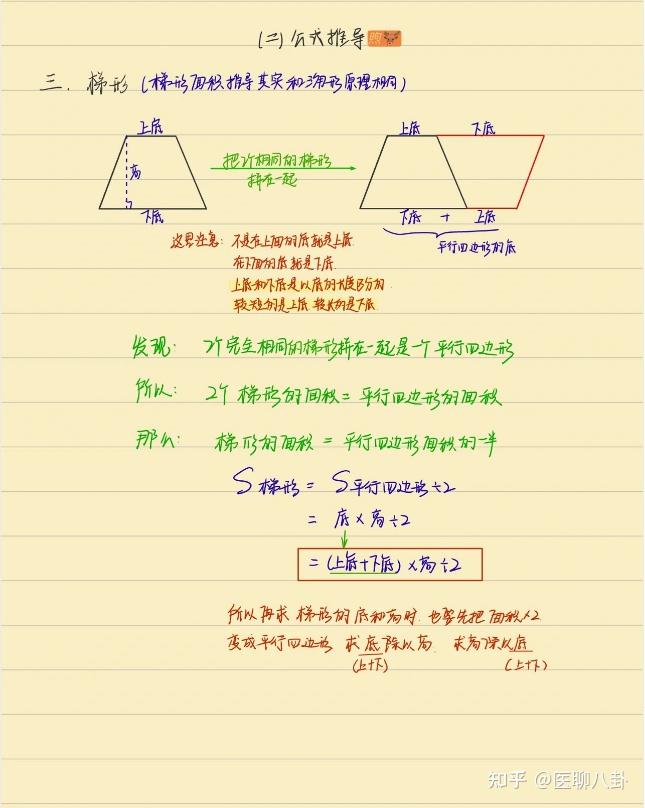 (二) 公式推导
三. 梯形 (梯形面积推导其实和三角形原理相同)
上底
高
下底
把2个相同的梯形
拼在一起
上底 下底
下底 + 上底
平行四边形的底
这里注意: 不是在上面的底就是上底
在下面的底就是下底
上底和下底是以底的长度区分的
较短的是上底 较长的是下底
发现: 2个完全相同的梯形拼在一起是一个平行四边形
所以: 2个梯形的面积 = 平行四边形的面积
那么: 梯形的面积 = 平行四边形面积的一半
S梯形 = S平行四边形÷2
= 底×高÷2
= (上底+下底)×高÷2
所以再求梯形的底和高时 也要先把面积×2
变成平行四边形 求底除以高 求高除以底
(上+下) (上+下)
知乎 @医聊八卦